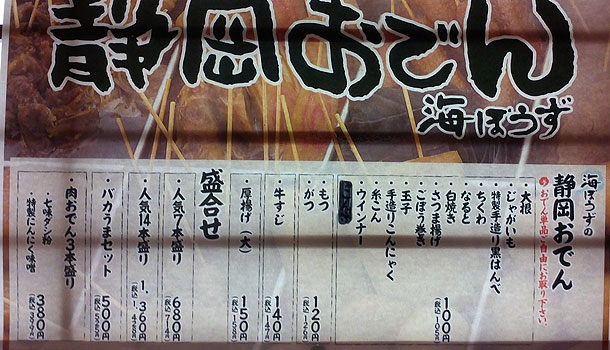 静岡おでん
海ぼうず
海ぼうずの
静岡おでん
おでん単品ご自由にお取り下さい。
・大根
・じゃがいも
・特製手造り黒はんぺ
・ちくわ
・なると
・白焼き
・さつま揚げ
・ごぼう巻き
・玉子
・手造りこんにゃく
・糸こん
・ウインナー
100円
(税込105円)
・もつ
・がつ
120円
(税込126円)
・牛すじ
140円
(税込147円)
・厚揚げ(大)
150円
(税込158円)
盛合せ
・人気7本盛り
680円
(税込714円)
・人気14本盛り
1,360円
(税込1,428円)
・バカうまセット
500円
(税込525円)
・肉おでん3本盛り
380円
(税込399円)
・七味ダシ粉
・特製にんにく味噌